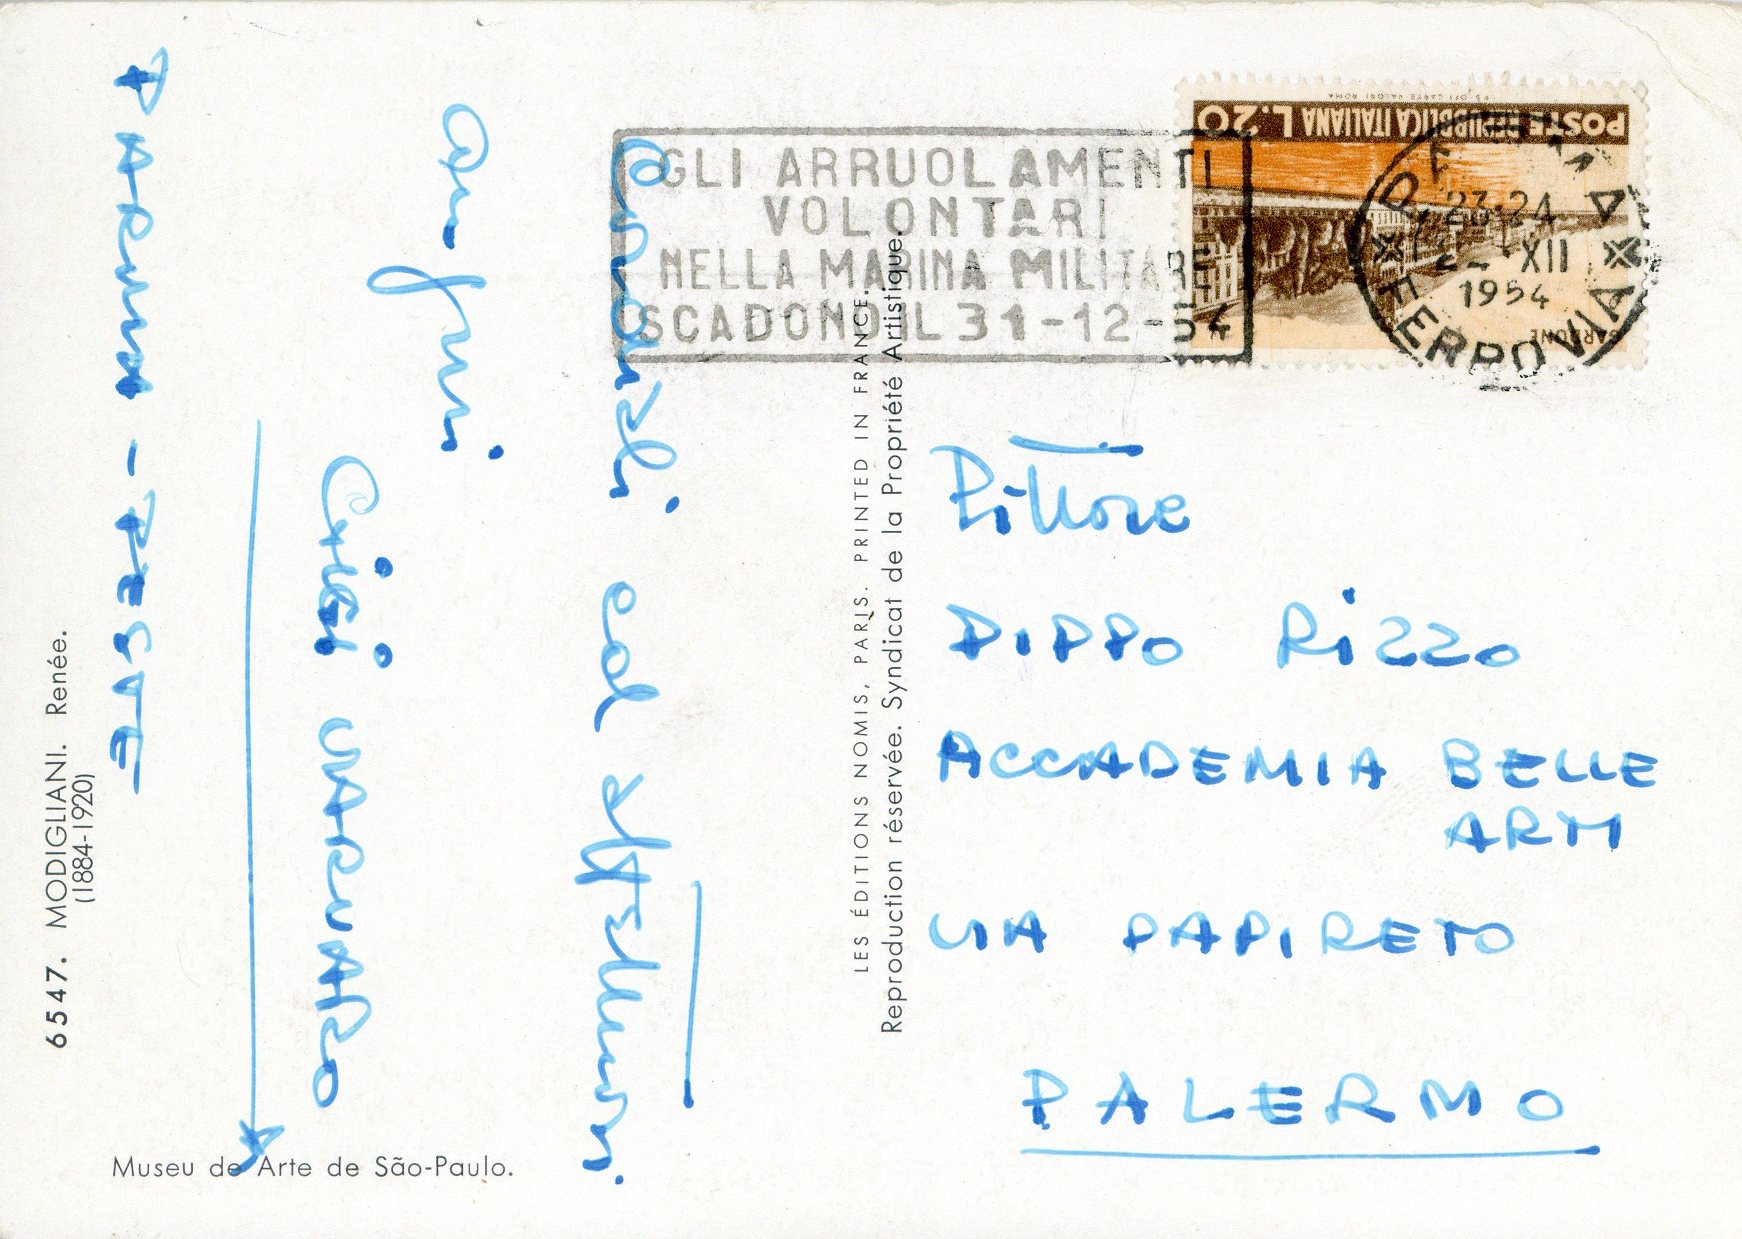 GLI ARRUOLAMENTI
VOLONTARI
NELLA MARINA MILITARE
SCADONO IL 31-12-54
POSTE REPUBBLICA ITALIANA L.20
PARMA FERROVIA
23-24
XII
1954
Cordiali ed
auguri
VARVARO
PARMA -
6547. MODIGLIANI. Renée.
(1884-1920)
Museu de Arte de São-Paulo.
LES ÉDITIONS NOMIS, PARIS. PRINTED IN FRANCE.
Reproduction réservée. Syndicat de la Propriété Artistique.
Pittore
PIPPO RIZZO
ACCADEMIA BELLE
ARTI
VIA PAPIRETO
PALERMO